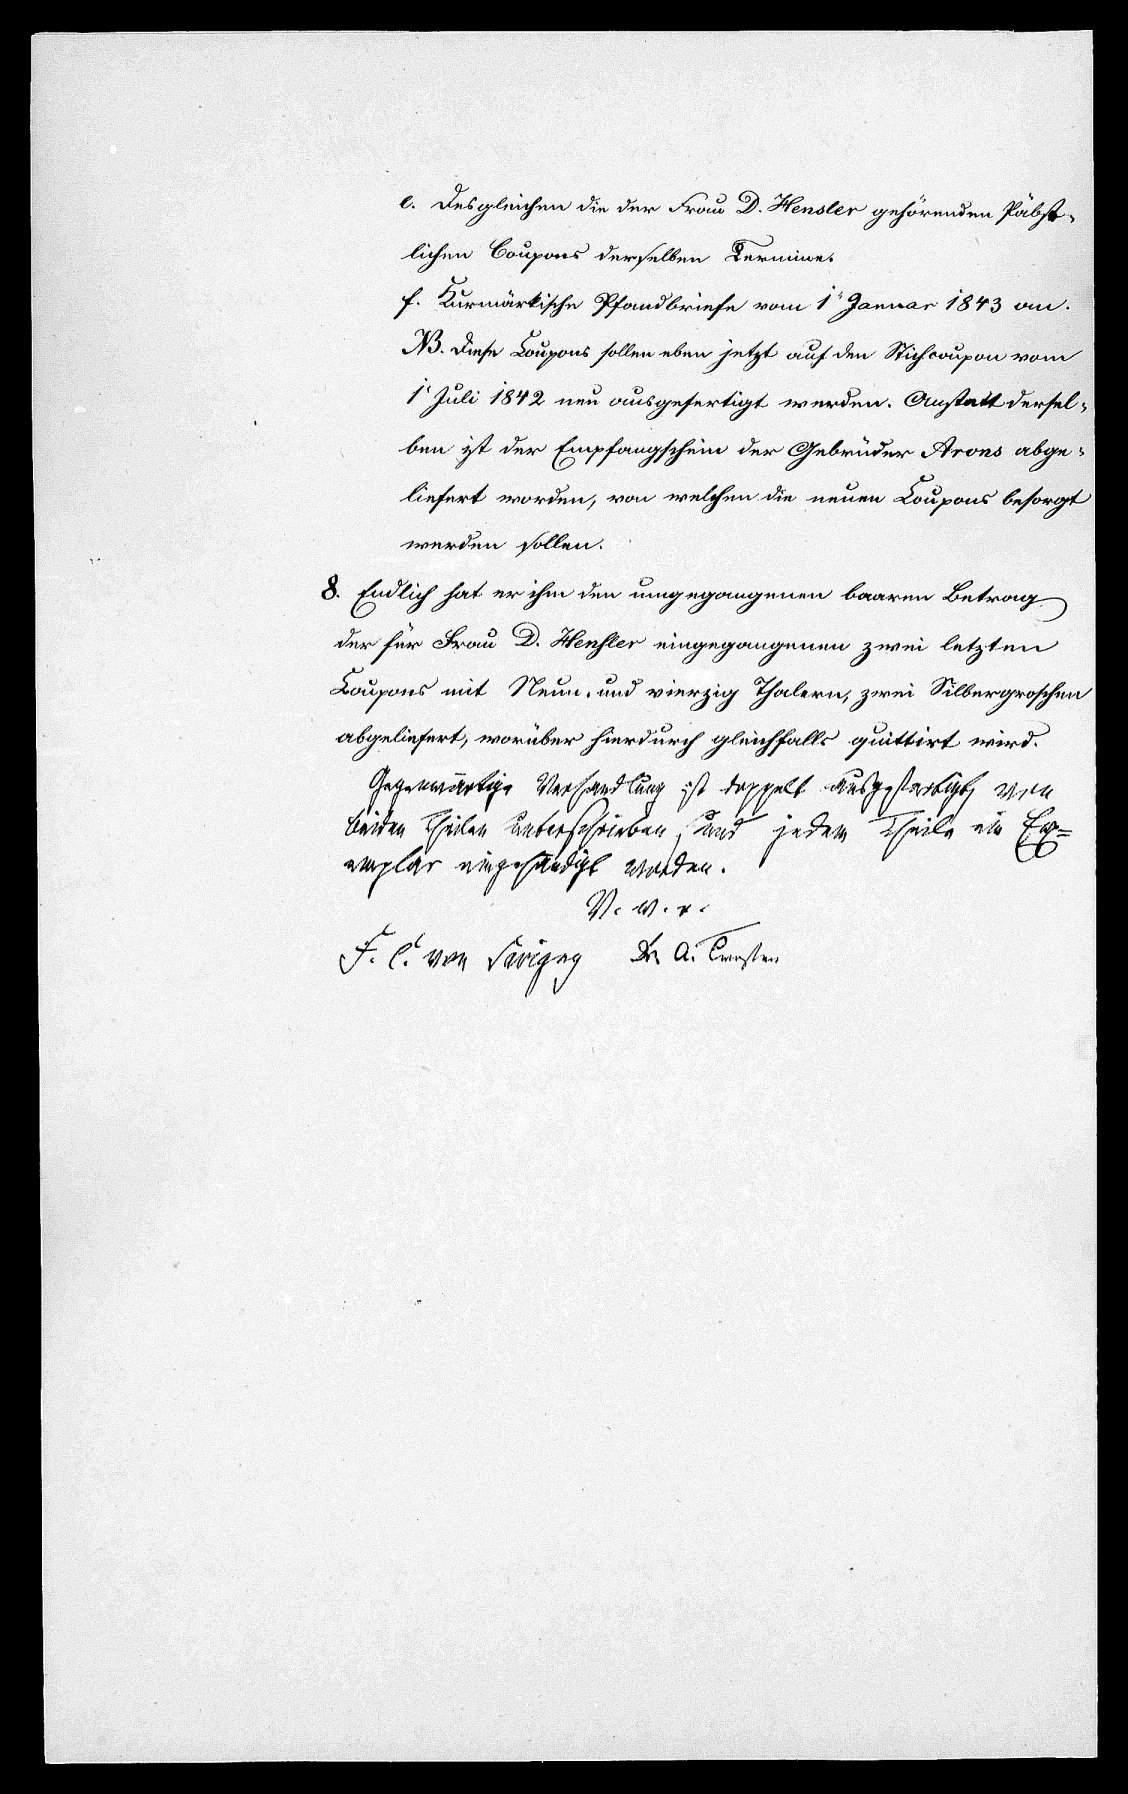 e. Desgleichen die der Frau D. Hensler gehörenden Päbst-
lichen Coupons derselben Termine.
f. Kurmärkische Pfandbriefe vom 1r Januar 1843 an.
NB. Diese Coupons sollen eben jetzt auf den Stichcoupon vom
1r Juli 1842 neu ausgefertigt werden. Anstatt dersel-
ben ist der Empfangschein der Gebrüder Arons abge-
liefert worden, von welchen die neuen Coupons besorgt
werden sollen.
8. Endlich hat er ihm den umgegangenen baaren Betrag
der für Frau D. Henßler eingegangenen zwei letzten
Coupons mit Neun und vierzig Thalern, zwei Silbergroschen
abgeliefert, worüber hierdurch gleichfalls quittirt wird.
Gegenwärtige Verhandlung ist doppelt ausgefertigt, von
beiden Theilen unterschrieben, und jedem Theile ein Ex=
emplar eingehändigt worden.
V. w. o.
F. C. von Savigny Dr. A. Twesten